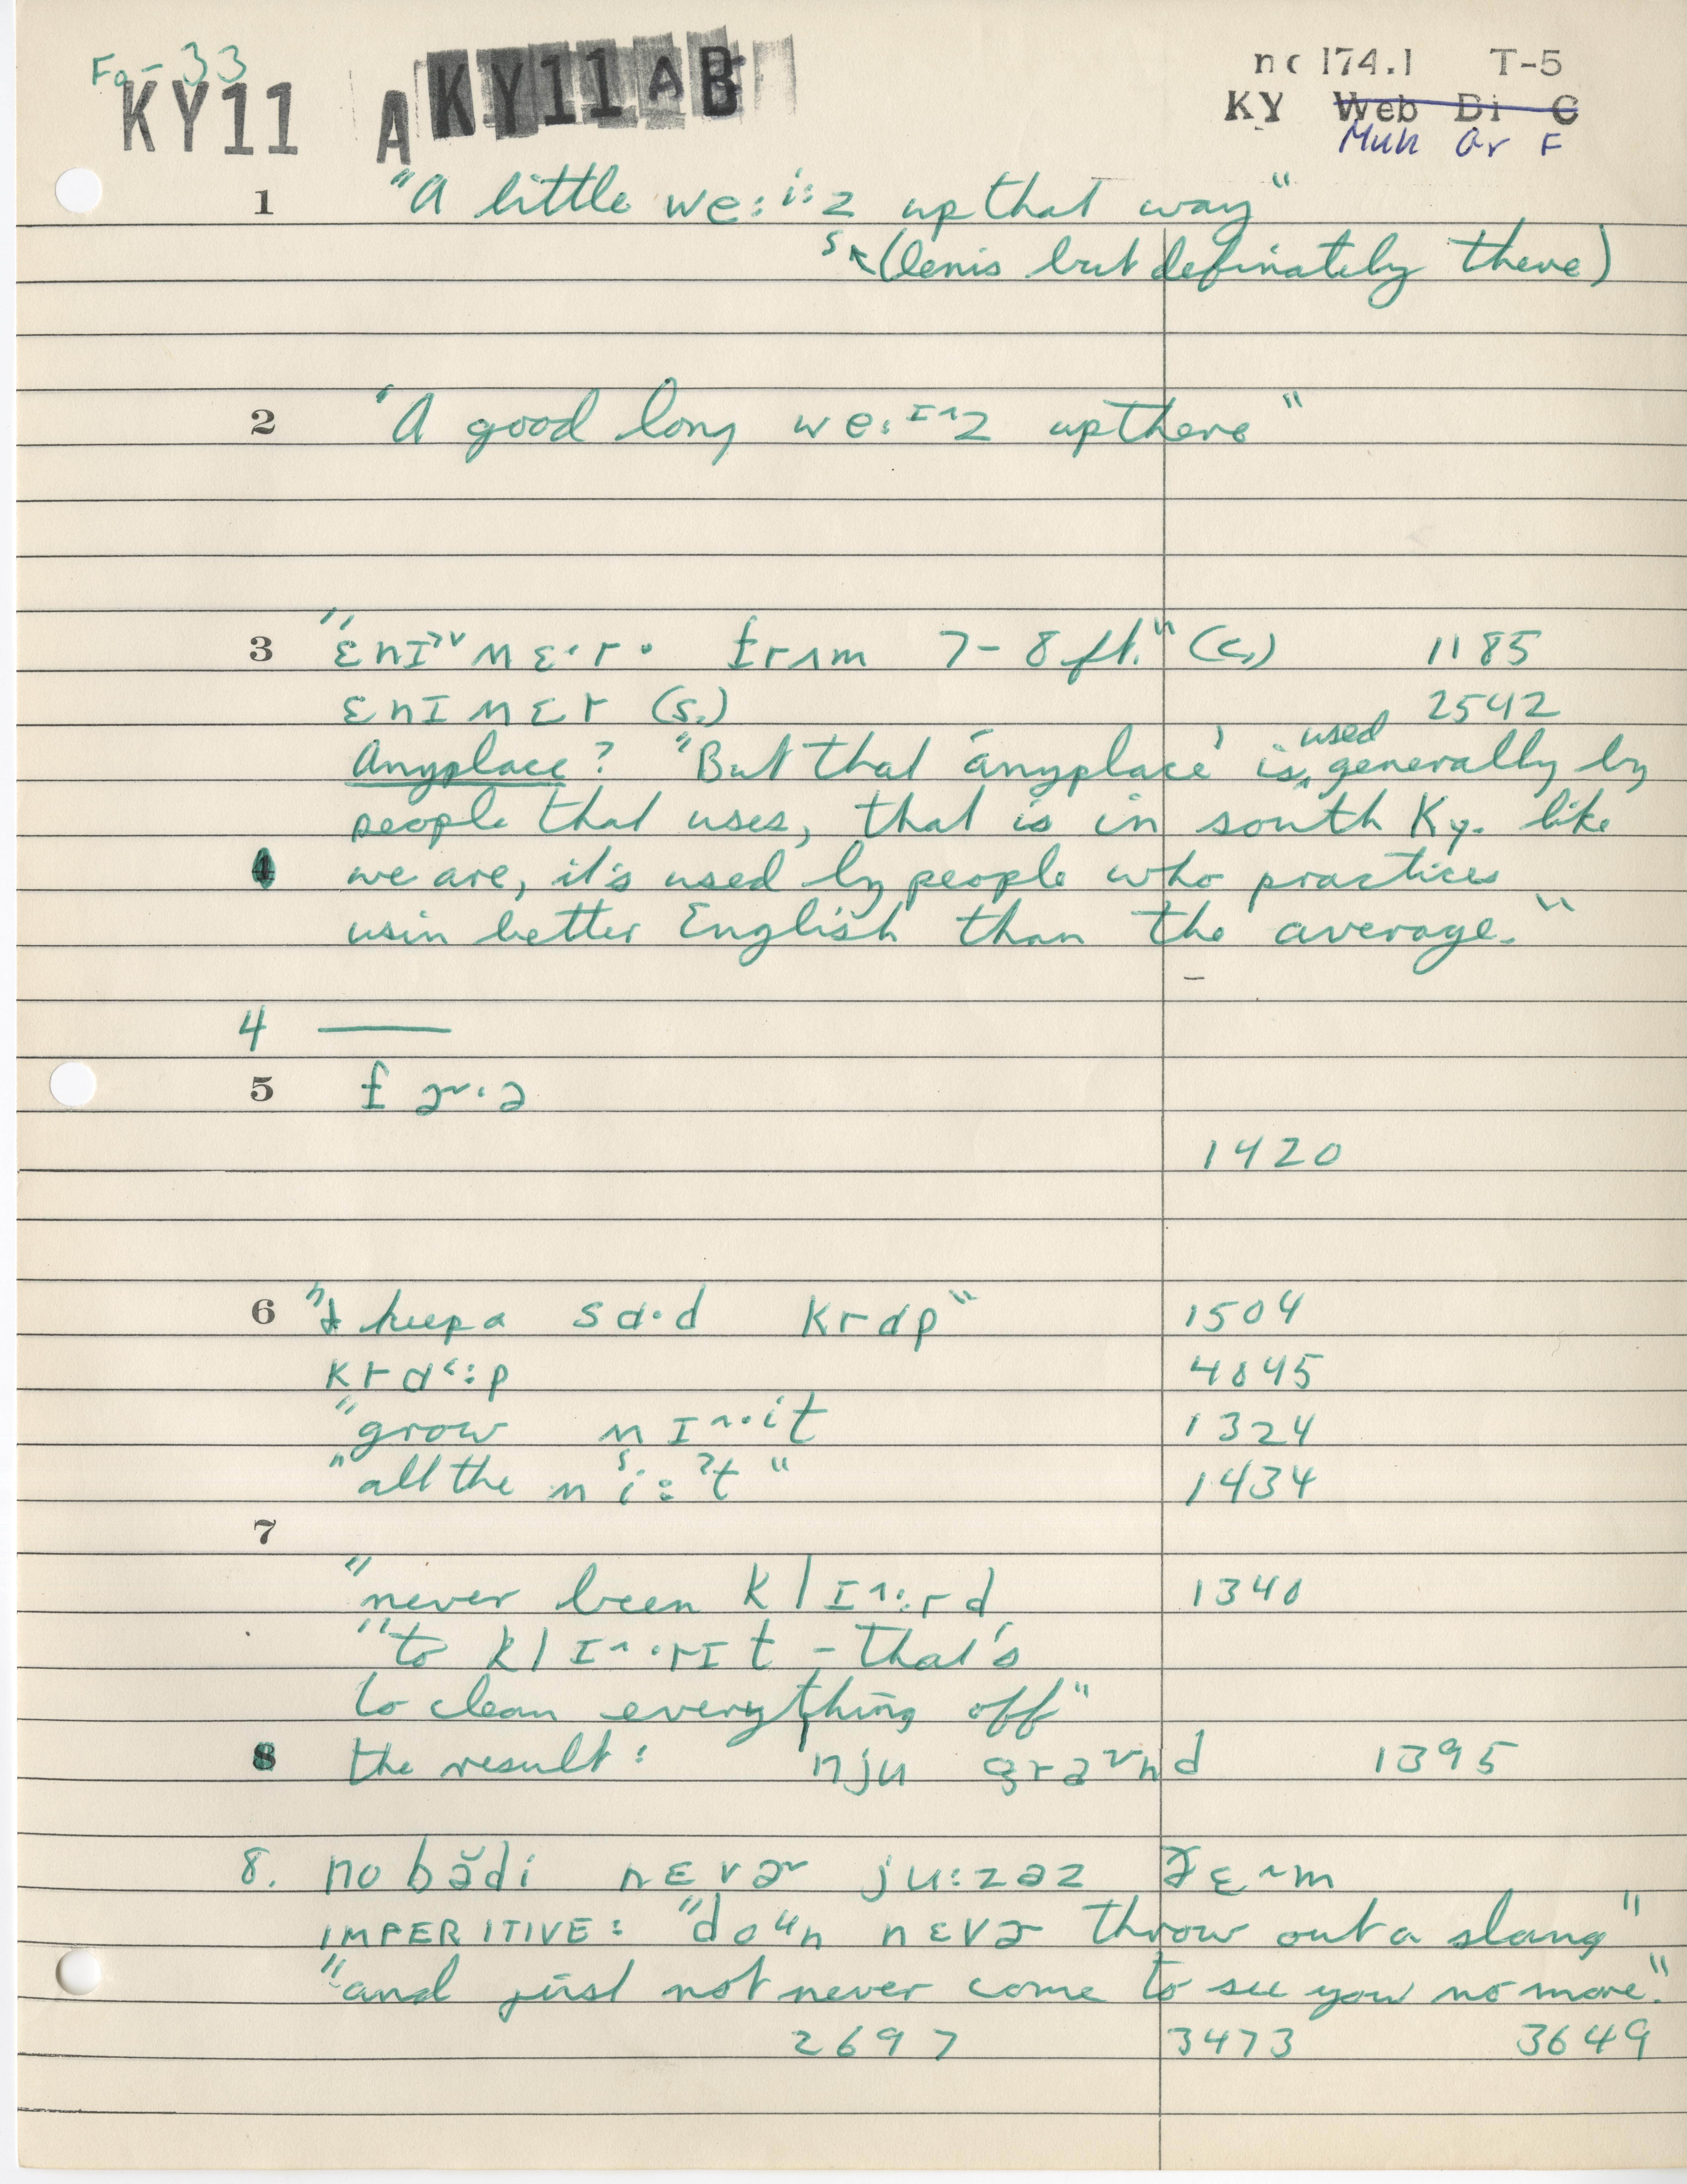 Fa-33
KY11 A KY11AB
nc 174.1 T-5
KY Web Di C
Muh Or F
1 "A little we:i:z up that way"
s (lenis but definately there)
2 "A good long we:ɪ^z up there"
3 "ɛnɪ˅ʍɛ·r· frʌm 7-8 ft." (c.) 1185
ɛnɪʍɛr (s.) 2542
Anyplace? "But that 'anyplace' is used generally by
people that uses, that is in south Ky. like
we are, it's used by people who practices
usin better English than the average."
4 ———
5 fɚ·ə
1420
6 "I keep a sɑ·d krɑp" 1504
krɑ<:p 4045
"grow ʍɪ^·it 1324
"all the ʍi:ʔt" 1434
7
"never been klɪ^:rd 1340
"to klɪ^·rɪt - that's
to clean everything off"
8 the result: 'nju graʊnd 1395
8. nobădi nɛvɚ ju:zəz ðɛ~m
IMPERITIVE: "doᵘn nɛvɚ throw out a slang"
"and just not never come to see you no more."
2697 3473 3649